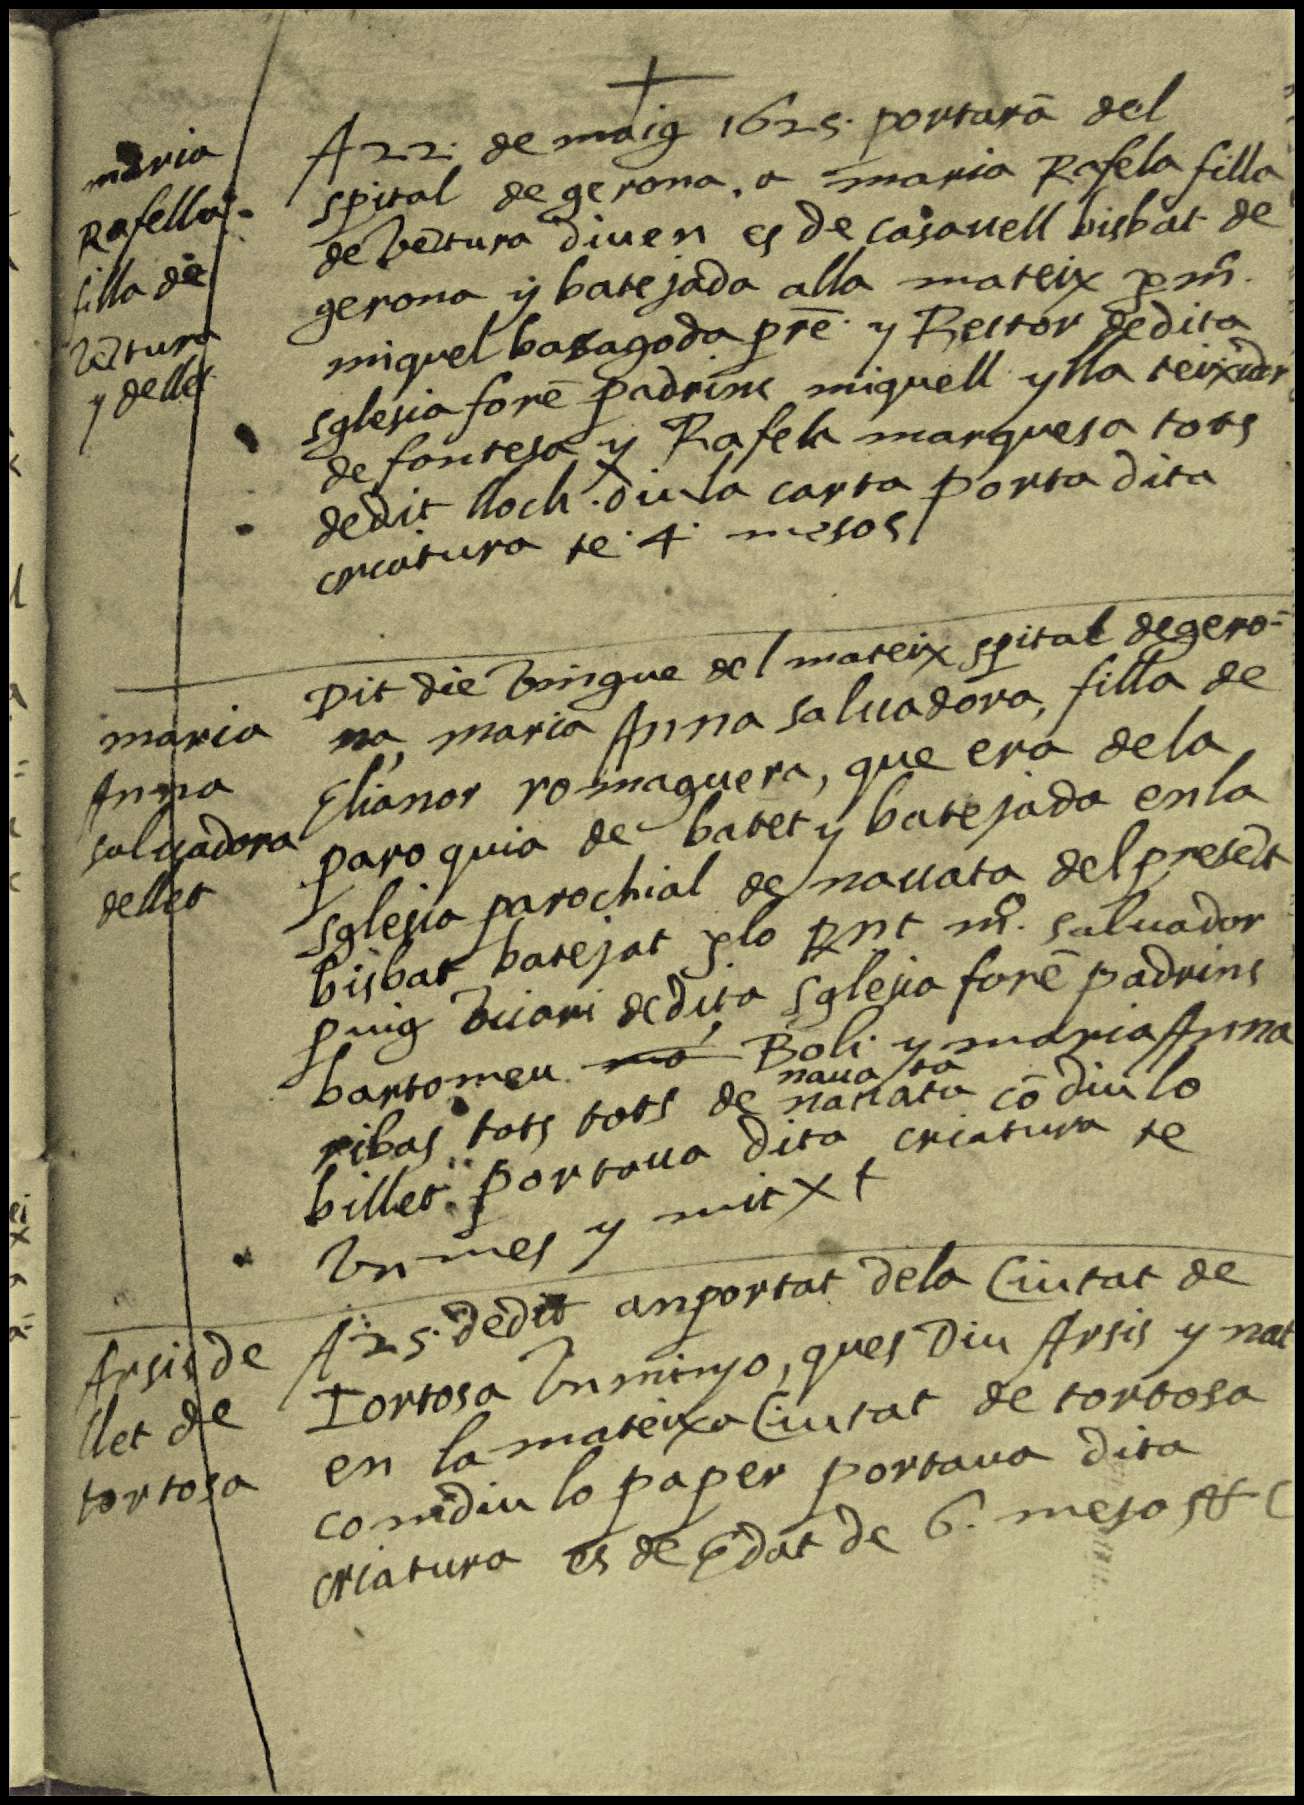 maria
Rafella
filla de
vētura
y de llet
A 22. de maig 1625. portarā del
spital de gerona, a maria Rafela filla
de vētura diuen es de casauell bisbat de
gerona y batejada alla mateix p m̄.
miquel basagoda prē. y Rector de dita
sglesia forē padrins miquell ylla teixidor
de fontesa y Rafela marquesa tots
de dit lloch. diu la carta porta dita
criatura te 4. mesos
maria
Anna
saluadora
de llet
Dit die vingue del mateix spital de gero-
na, maria Anna saluadora, filla de
Elianor romaguera, que era de la
paroquia de batet y batejada en la
sglesia parochial de nauata del presēt
bisbat batejat plo Rnt m̄. saluador
puig vicari de dita sglesia forē padrins
bartomeu ma Boli y maria Anna
nauata
ribas tots tots de nauata cō diu lo
billet portaua dita criatura te
vn mes y mitx t
Arsis de
llet de
tortosa
A 25. de dit anportat de la Ciutat de
Tortosa vn minyo, ques diu Arsis y nat
en la mateixa Ciutat de tortosa
com diu lo paper portaua dita
criatura es de Edat de 6. mesos &c